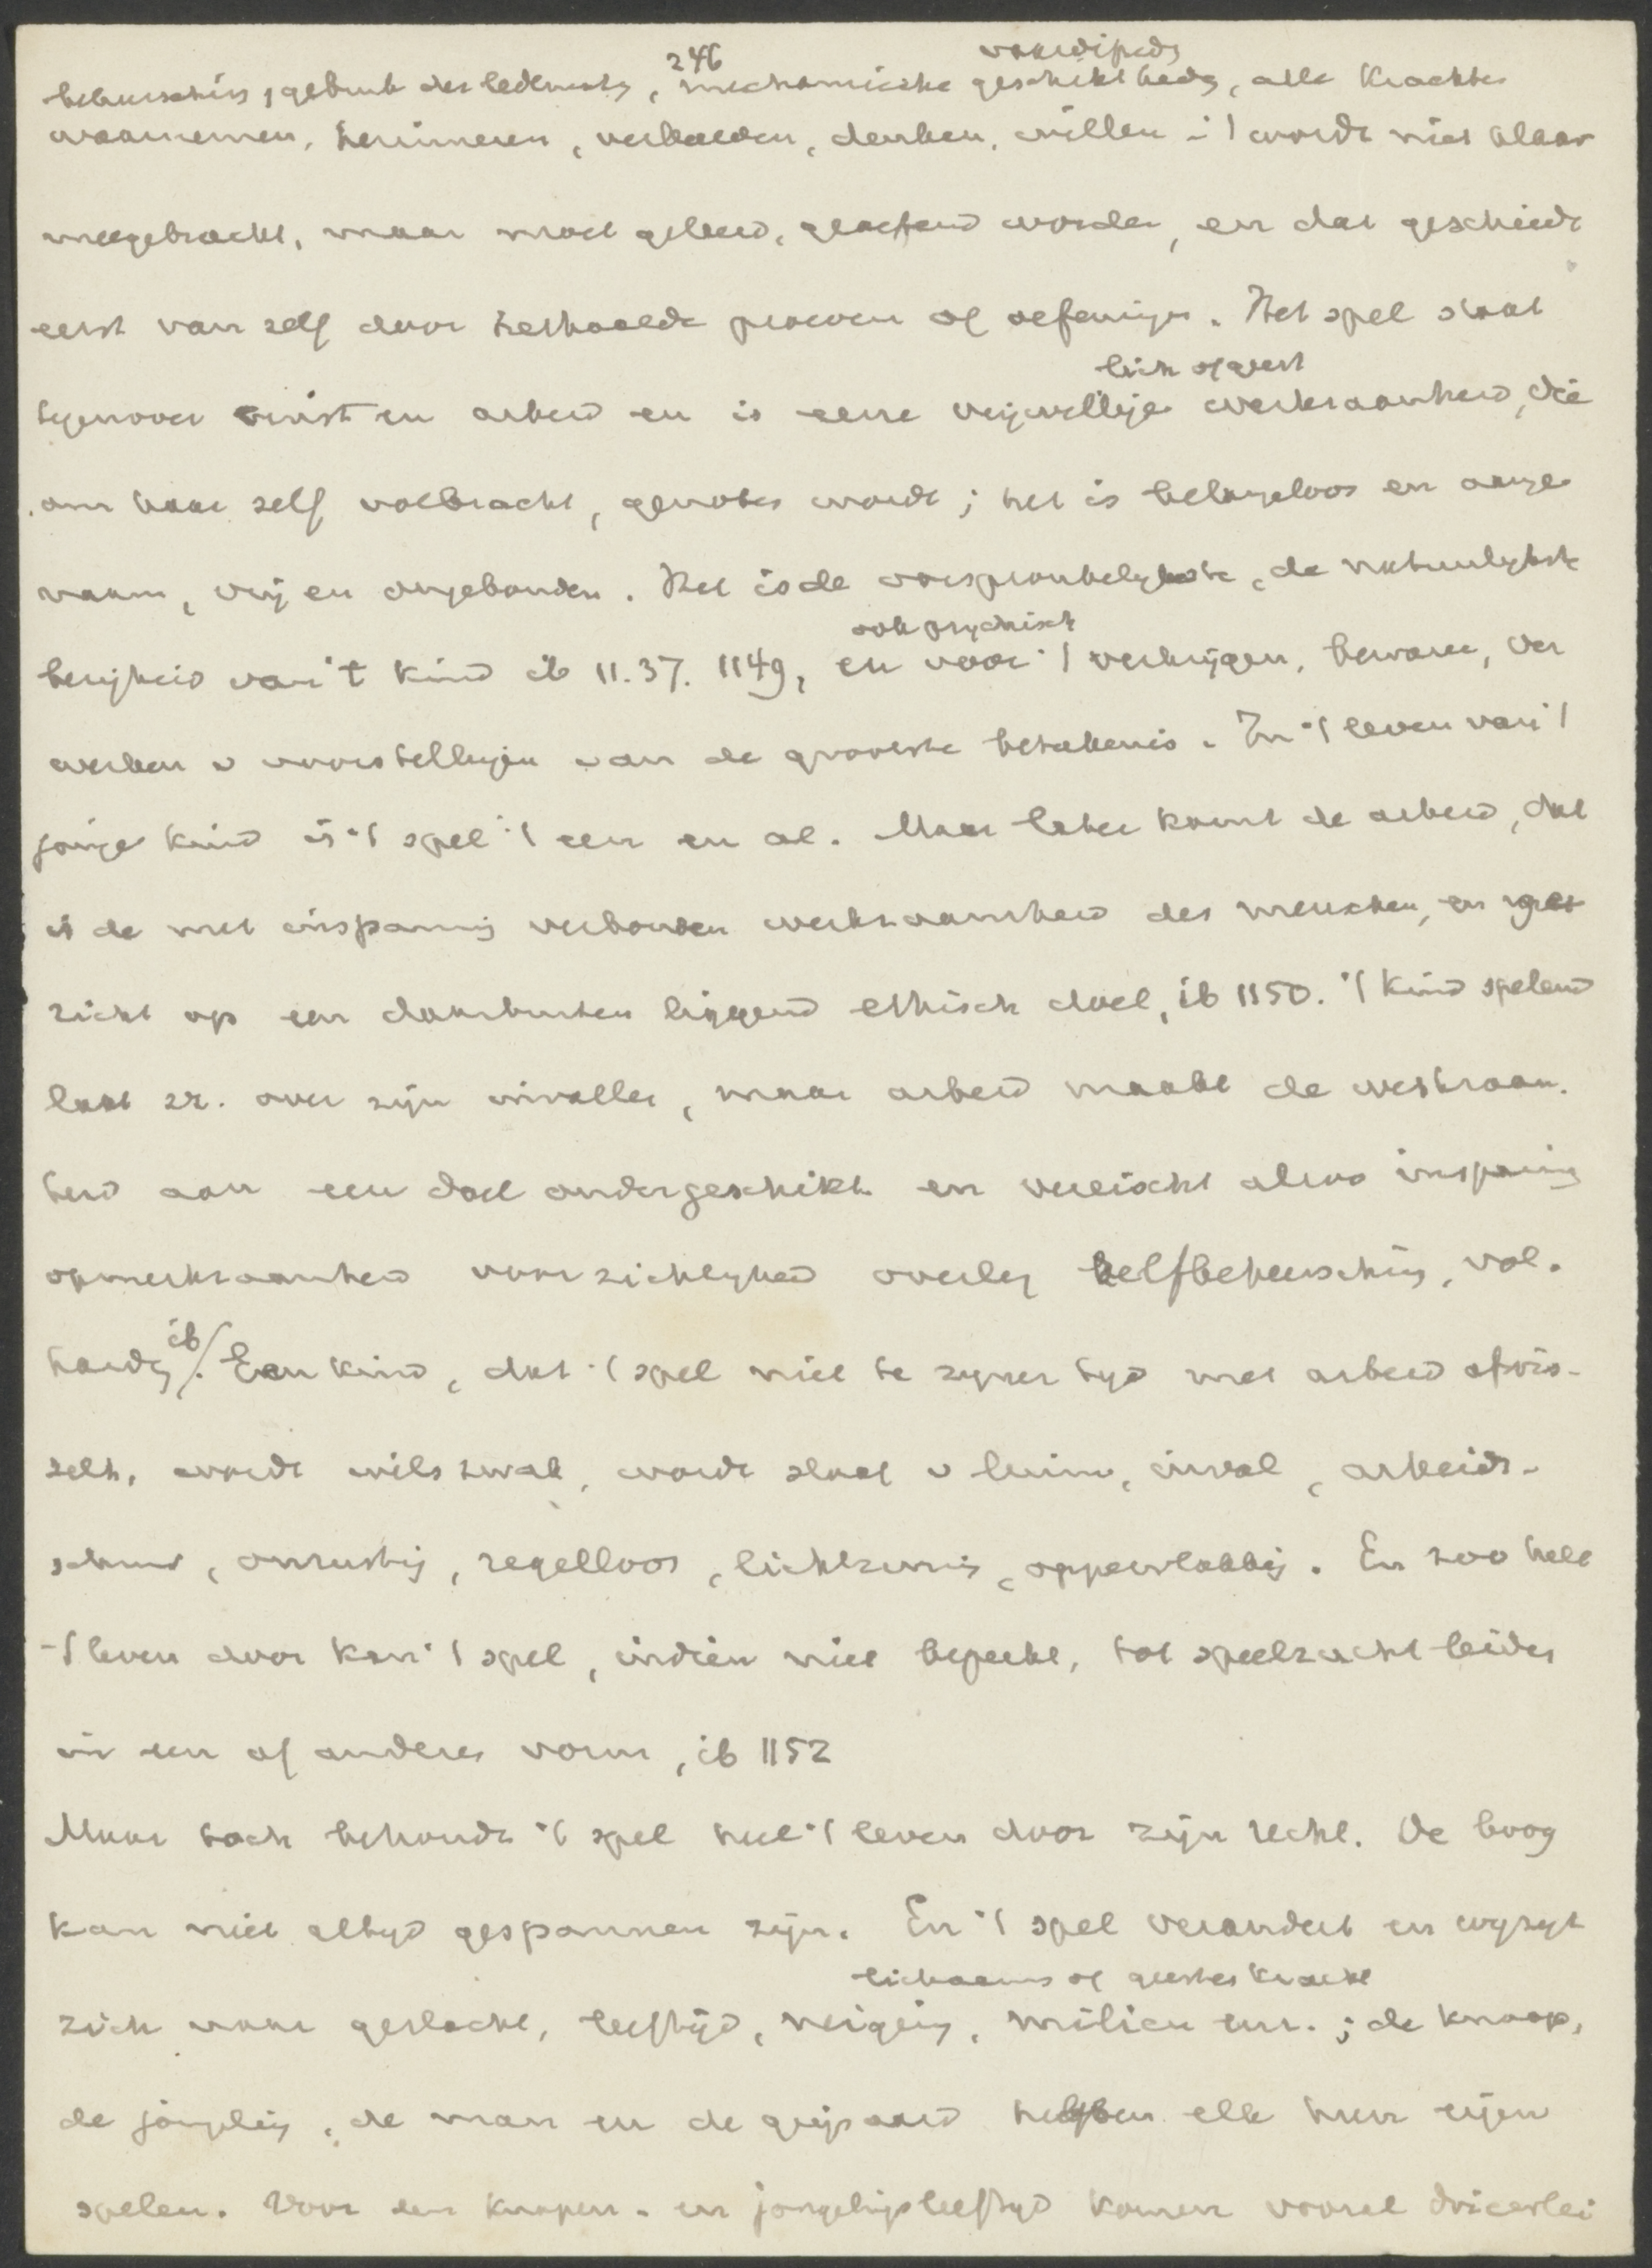 246
vaardighdn
beheersching, gebruik der ledematen, mechanische geschiktheden, alle krachten
waarnemen, herinneren, verbeelden, denken, willen - 't wordt niet klaar
meegebracht, maar moet geleerd, geoefend worden, en dat geschiedt
eerst van zelf door herhaalde proeven of oefeningen. Het spel staat
lich of geest
tegenover ernst en arbeid en is eene vrijwillige werkzaamheid, die
om haar zelf volbracht, genoten wordt; het is belangeloos en aange
naam, vrij en ongebonden. Het is de oorspronkelykste, de natuurlykste
ook psychisch
bezigheid van 't kind ib 11.37. 1149, en voor 't verkrijgen, bewaren, ver
werken v voorstellingen van de grootste beteekenis. In 't leven van 't
jonge kind is 't spel 't een en al. Maar later komt de arbeid, dat
is de met inspanning verbonden werkzaamheid des menschen, en
zicht op een daarbuiten liggend ethisch doel, ib 1150. 't Kind spelend
laat zr. over zijn invallen, maar arbeid maakt de werkzaam.
heid aan een doel ondergeschikt en vereischt alzoo inspanning
opmerkzaamheid voorzichtigheid overleg zelfbeheersching, vol.
ib
hardg. Een kind, dat 't spel niet te zyner tyd met arbeid afwis-
selt, wordt wilszwak, wordt slaaf v luim, inval, arbeids-
schuw, onrustig, regelloos, lichtzinnig, oppervlakkig. En zoo heel
't leven door kan 't spel, indien niet beperkt, tot speelzucht leiden
in een of anderen vorm, ib 1152
Maar toch behoudt 't spel heel 't leven door zijn recht. De boog
kan niet altyd gespannen zijn. En 't spel verandert en wyzigt
lichaams of geestes kracht
zich naar geslacht, leeftijd, neiging, milieu enz.; de knaap,
de jongeling, de man en de grijsaard hebben elk hun eigen
spelen. Voor den knapen- en jongelingsleeftyd komen vooral drieerlei